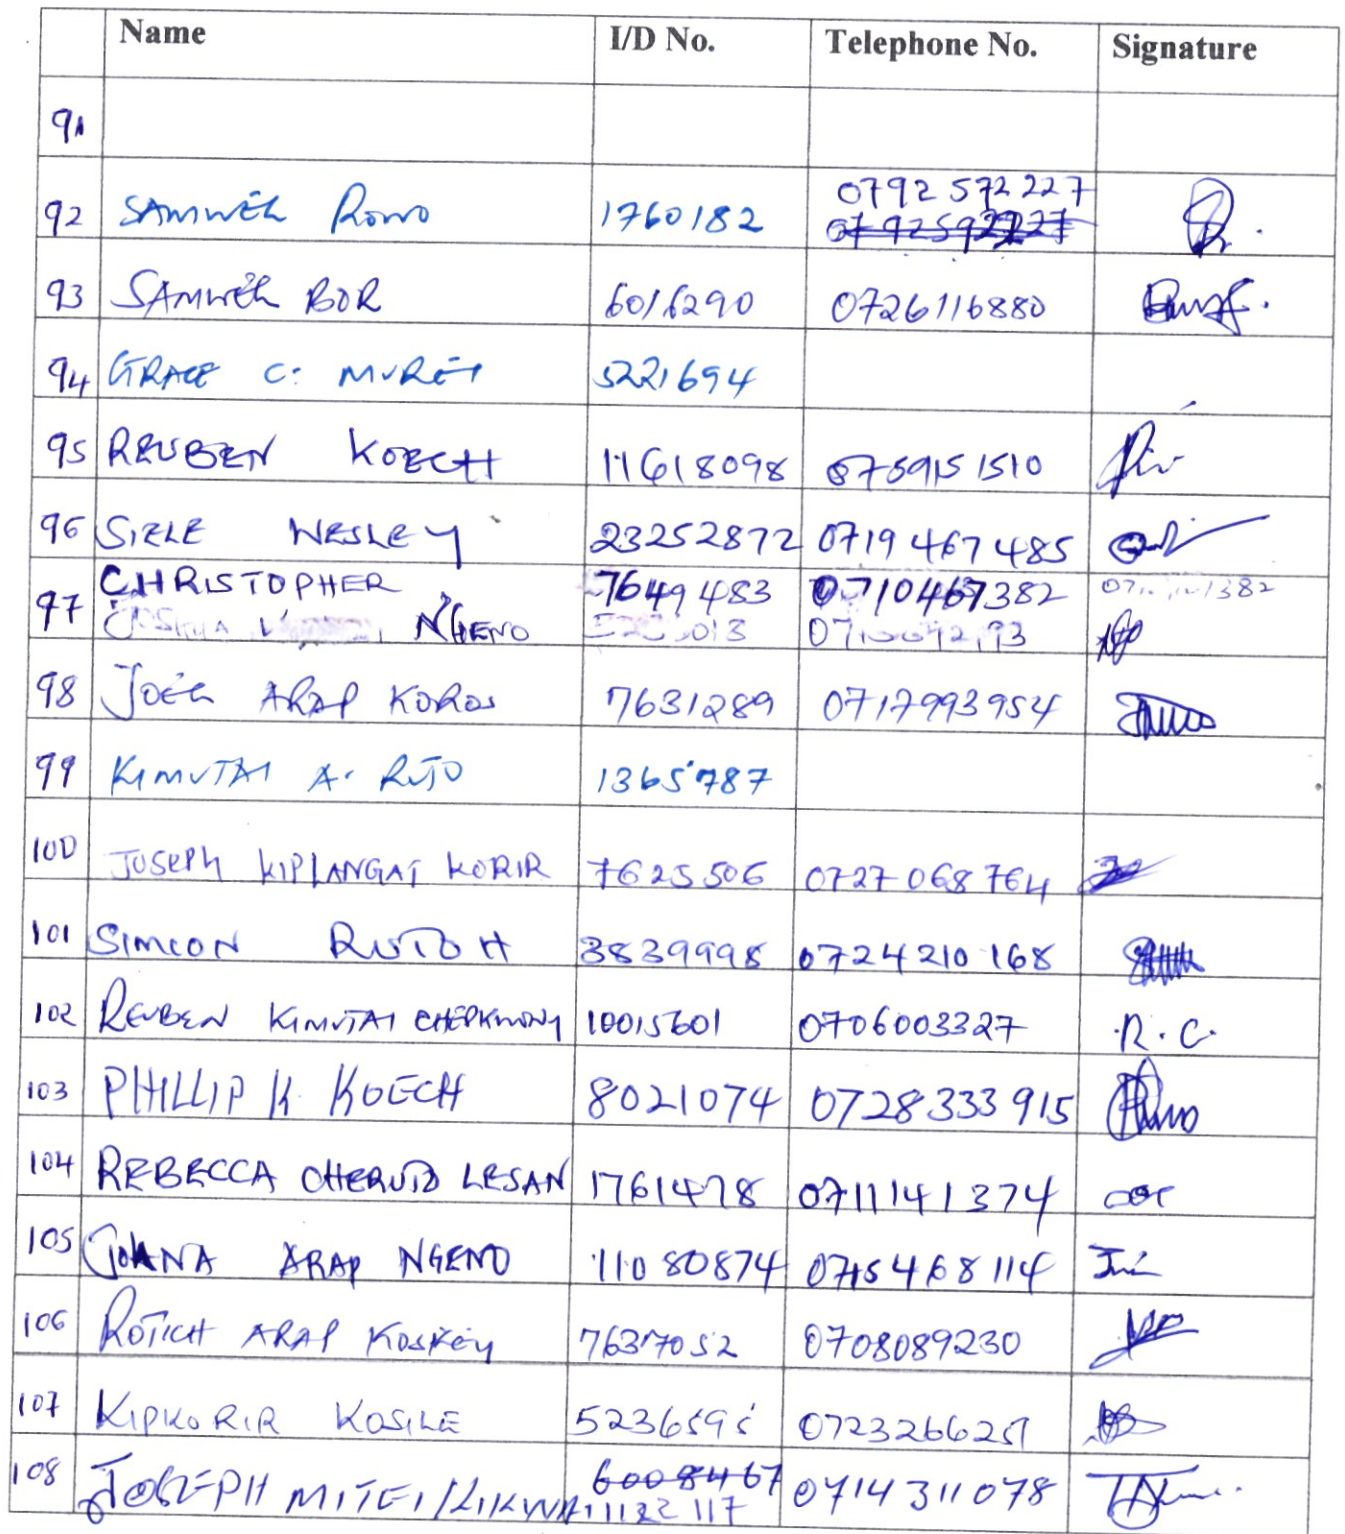 Name I/D No. Telephone No. Signature
91
0792 572 227
92 SAMWEL RONO 1760182 0792592227
93 SAMWEL BOR 6016290 0726116880
94 GRACE C. MUREI 5221694
95 REUBEN KOECH 11618098 0759151510
96 SIELE WESLEY 23252872 0719 467 485
CHRISTOPHER 7649483 0710467382
97 NGENO
98 JOEL ARAP KOROS 7631289 0717993954
99 KIMUTAI A. RUTO 1365787
100 JOSEPH KIPLANGAT KORIR 7625506 0727 068 764
101 SIMEON RUTOH 3839998 0724 210 168
102 REUBEN KIMUTAI CHEPKWONY 10015601 0706003327 R.C.
103 PHILLIP K KOECH 8021074 0728 333 915
104 REBECCA CHERUTO LESAN 1761478 0711141374
105 JOHANA ARAP NGENO 11080874 0715468114
106 ROTICH ARAP KOSKEY 7637052 0708089230
107 KIPKORIR KOSILE 5236595 0723266251
6008467
108 JOSEPH MITEI 0714 311078